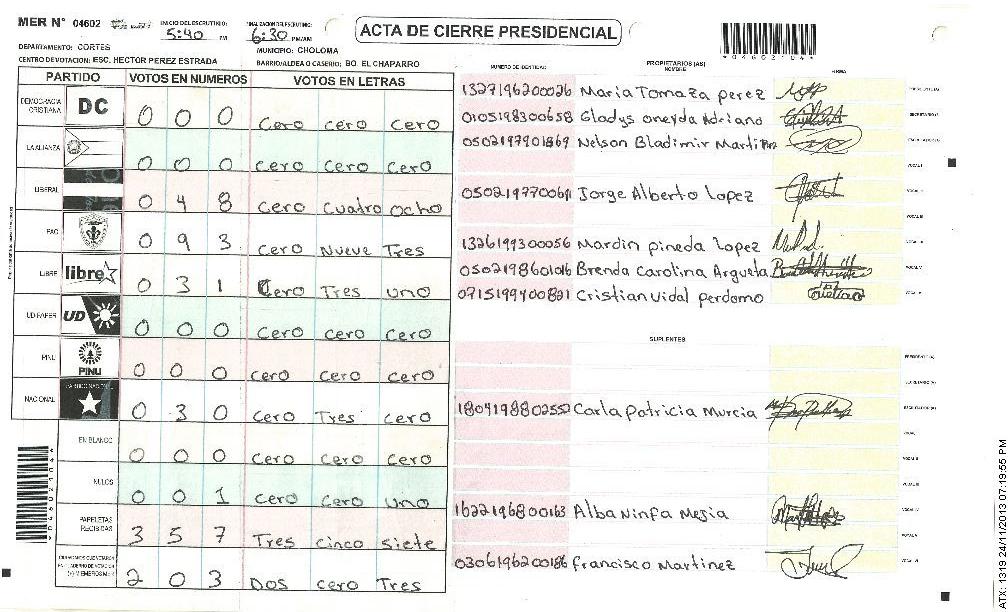 MER N° 04602 INICIO DEL ESCRUTINIO: 5:40 PM FINALIZACION DEL ESCRUTINIO: 6:30 PM/AM
ACTA DE CIERRE PRESIDENCIAL
*04602104*
DEPARTAMENTO: CORTES MUNICIPIO: CHOLOMA
CENTRO DE VOTACION: ESC. HECTOR PEREZ ESTRADA BARRIO/ALDEA O CASERIO: BO. EL CHAPARRO
PARTIDO VOTOS EN NUMEROS VOTOS EN LETRAS
DEMOCRACIA CRISTIANA DC 0 0 0 Cero cero Cero
LA ALIANZA 0 0 0 Cero Cero Cero
LIBERAL 0 4 8 Cero Cuatro Ocho
PAC 0 9 3 Cero Nueve Tres
LIBRE libre 0 3 1 Cero Tres uno
UD FAPER UD 0 0 0 Cero Cero Cero
PINU PINU 0 0 0 Cero Cero Cero
NACIONAL PARTIDO NACIONAL 0 3 0 Cero Tres cero
EN BLANCO 0 0 0 Cero Cero Cero
NULOS 0 0 1 Cero Cero uno
PAPELETAS RECIBIDAS 3 5 7 Tres cinco siete
2 0 3 Dos cero Tres
NUMERO DE IDENTIDAD PROPIETARIOS (AS) NOMBRE FIRMA
1327196200026 Maria Tomaza perez
0105198300658 Gladys oneyda Adriano
0502197901869 Nelson Bladimir Martinez
Jorge Alberto Lopez
1326199300056 Mardin pineda lopez
Brenda Carolina Argueta
Cristian Vidal perdomo
SUPLENTES
1804198802552 Carla Patricia Murcia
1622196800163 Alba Ninfa Mejia
0306196200186 Francisco Martinez
*04602104*
ATX: 1319 24/11/2013 07:19:55 PM